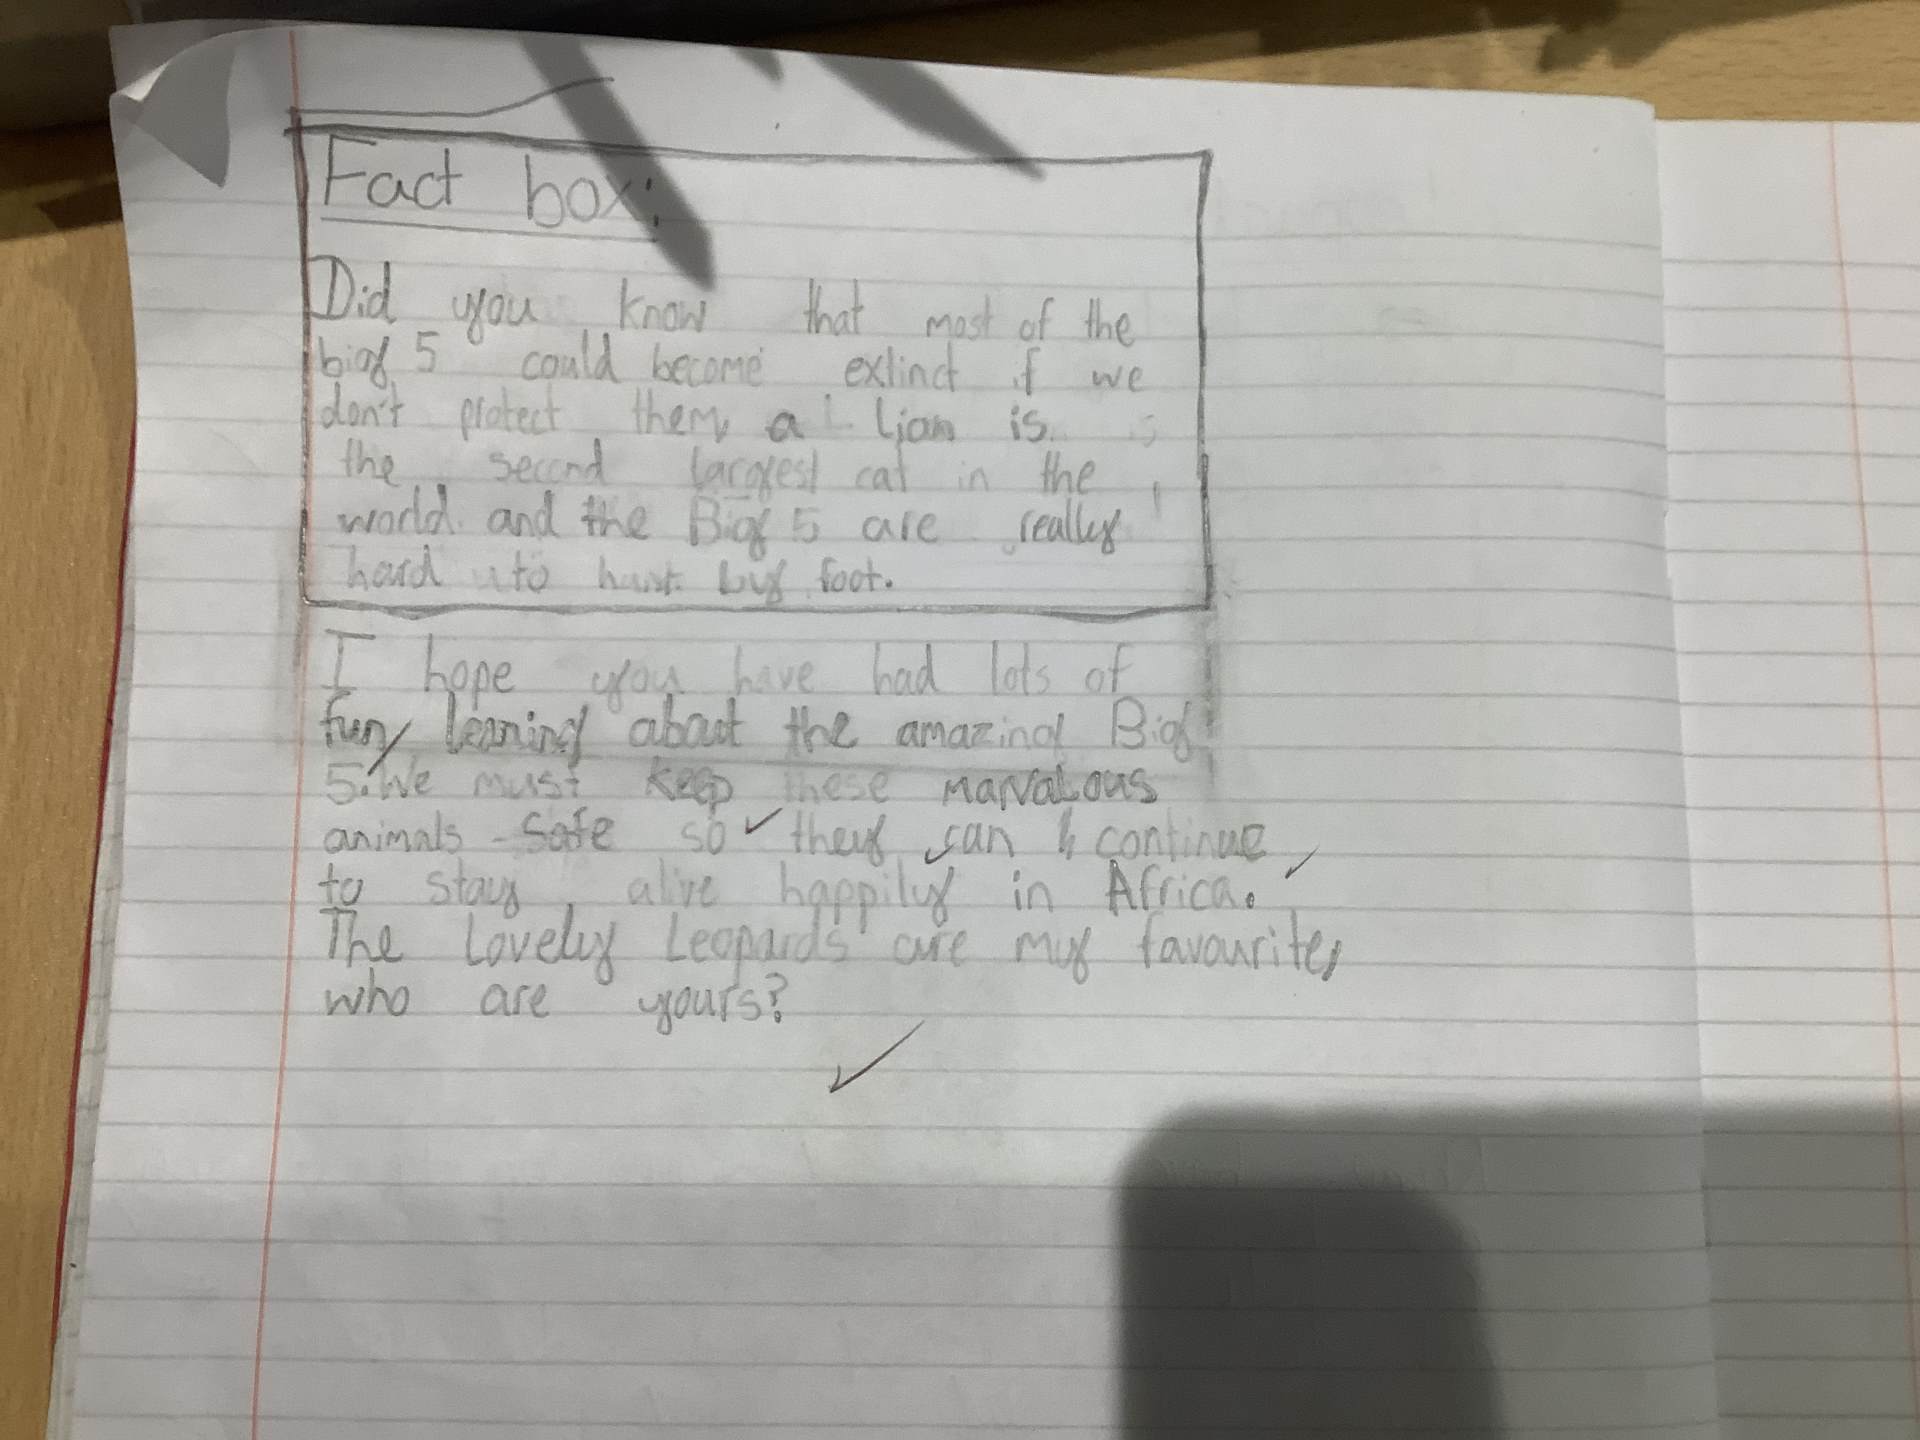 Fact box:
Did you know that most of the
big 5 could become extinct if we
don't protect them, a Lion is
the second largest cat in the
world and the Big 5 are really
hard to hunt by foot.
I hope you have had lots of
fun learning about the amazing Big
5. We must keep these marvalous
animals safe so they can continue
to stay alive happily in Africa.
The Lovely Leopards are my favourite,
who are yours?